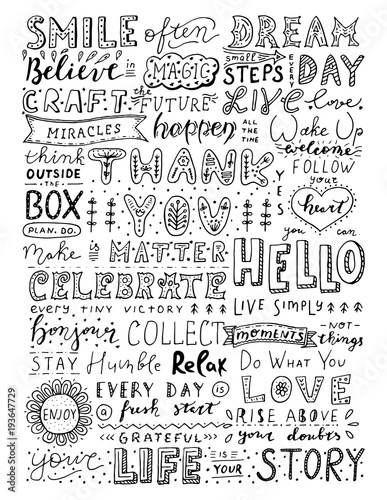 SMILE often DREAM
Believe in MAGIC small STEPS EVERY DAY
CRAFT the FUTURE LIVE love.
MIRACLES happen ALL THE TIME Wake Up
think OUTSIDE THE BOX THANK welcome
FOLLOW your heart
PLAN. DO. YOU YES you can
Make IS MATTER HELLO
CELEBRATE
every tiny victory LIVE SIMPLY
bonjour COLLECT moments -NOT- things
STAY Humble Relax Do What You LOVE
ENJOY EVERY DAY IS a fresh start
RISE ABOVE
GRATEFUL your doubts
your LIFE IS YOUR STORY
Adobe Stock | #193647729